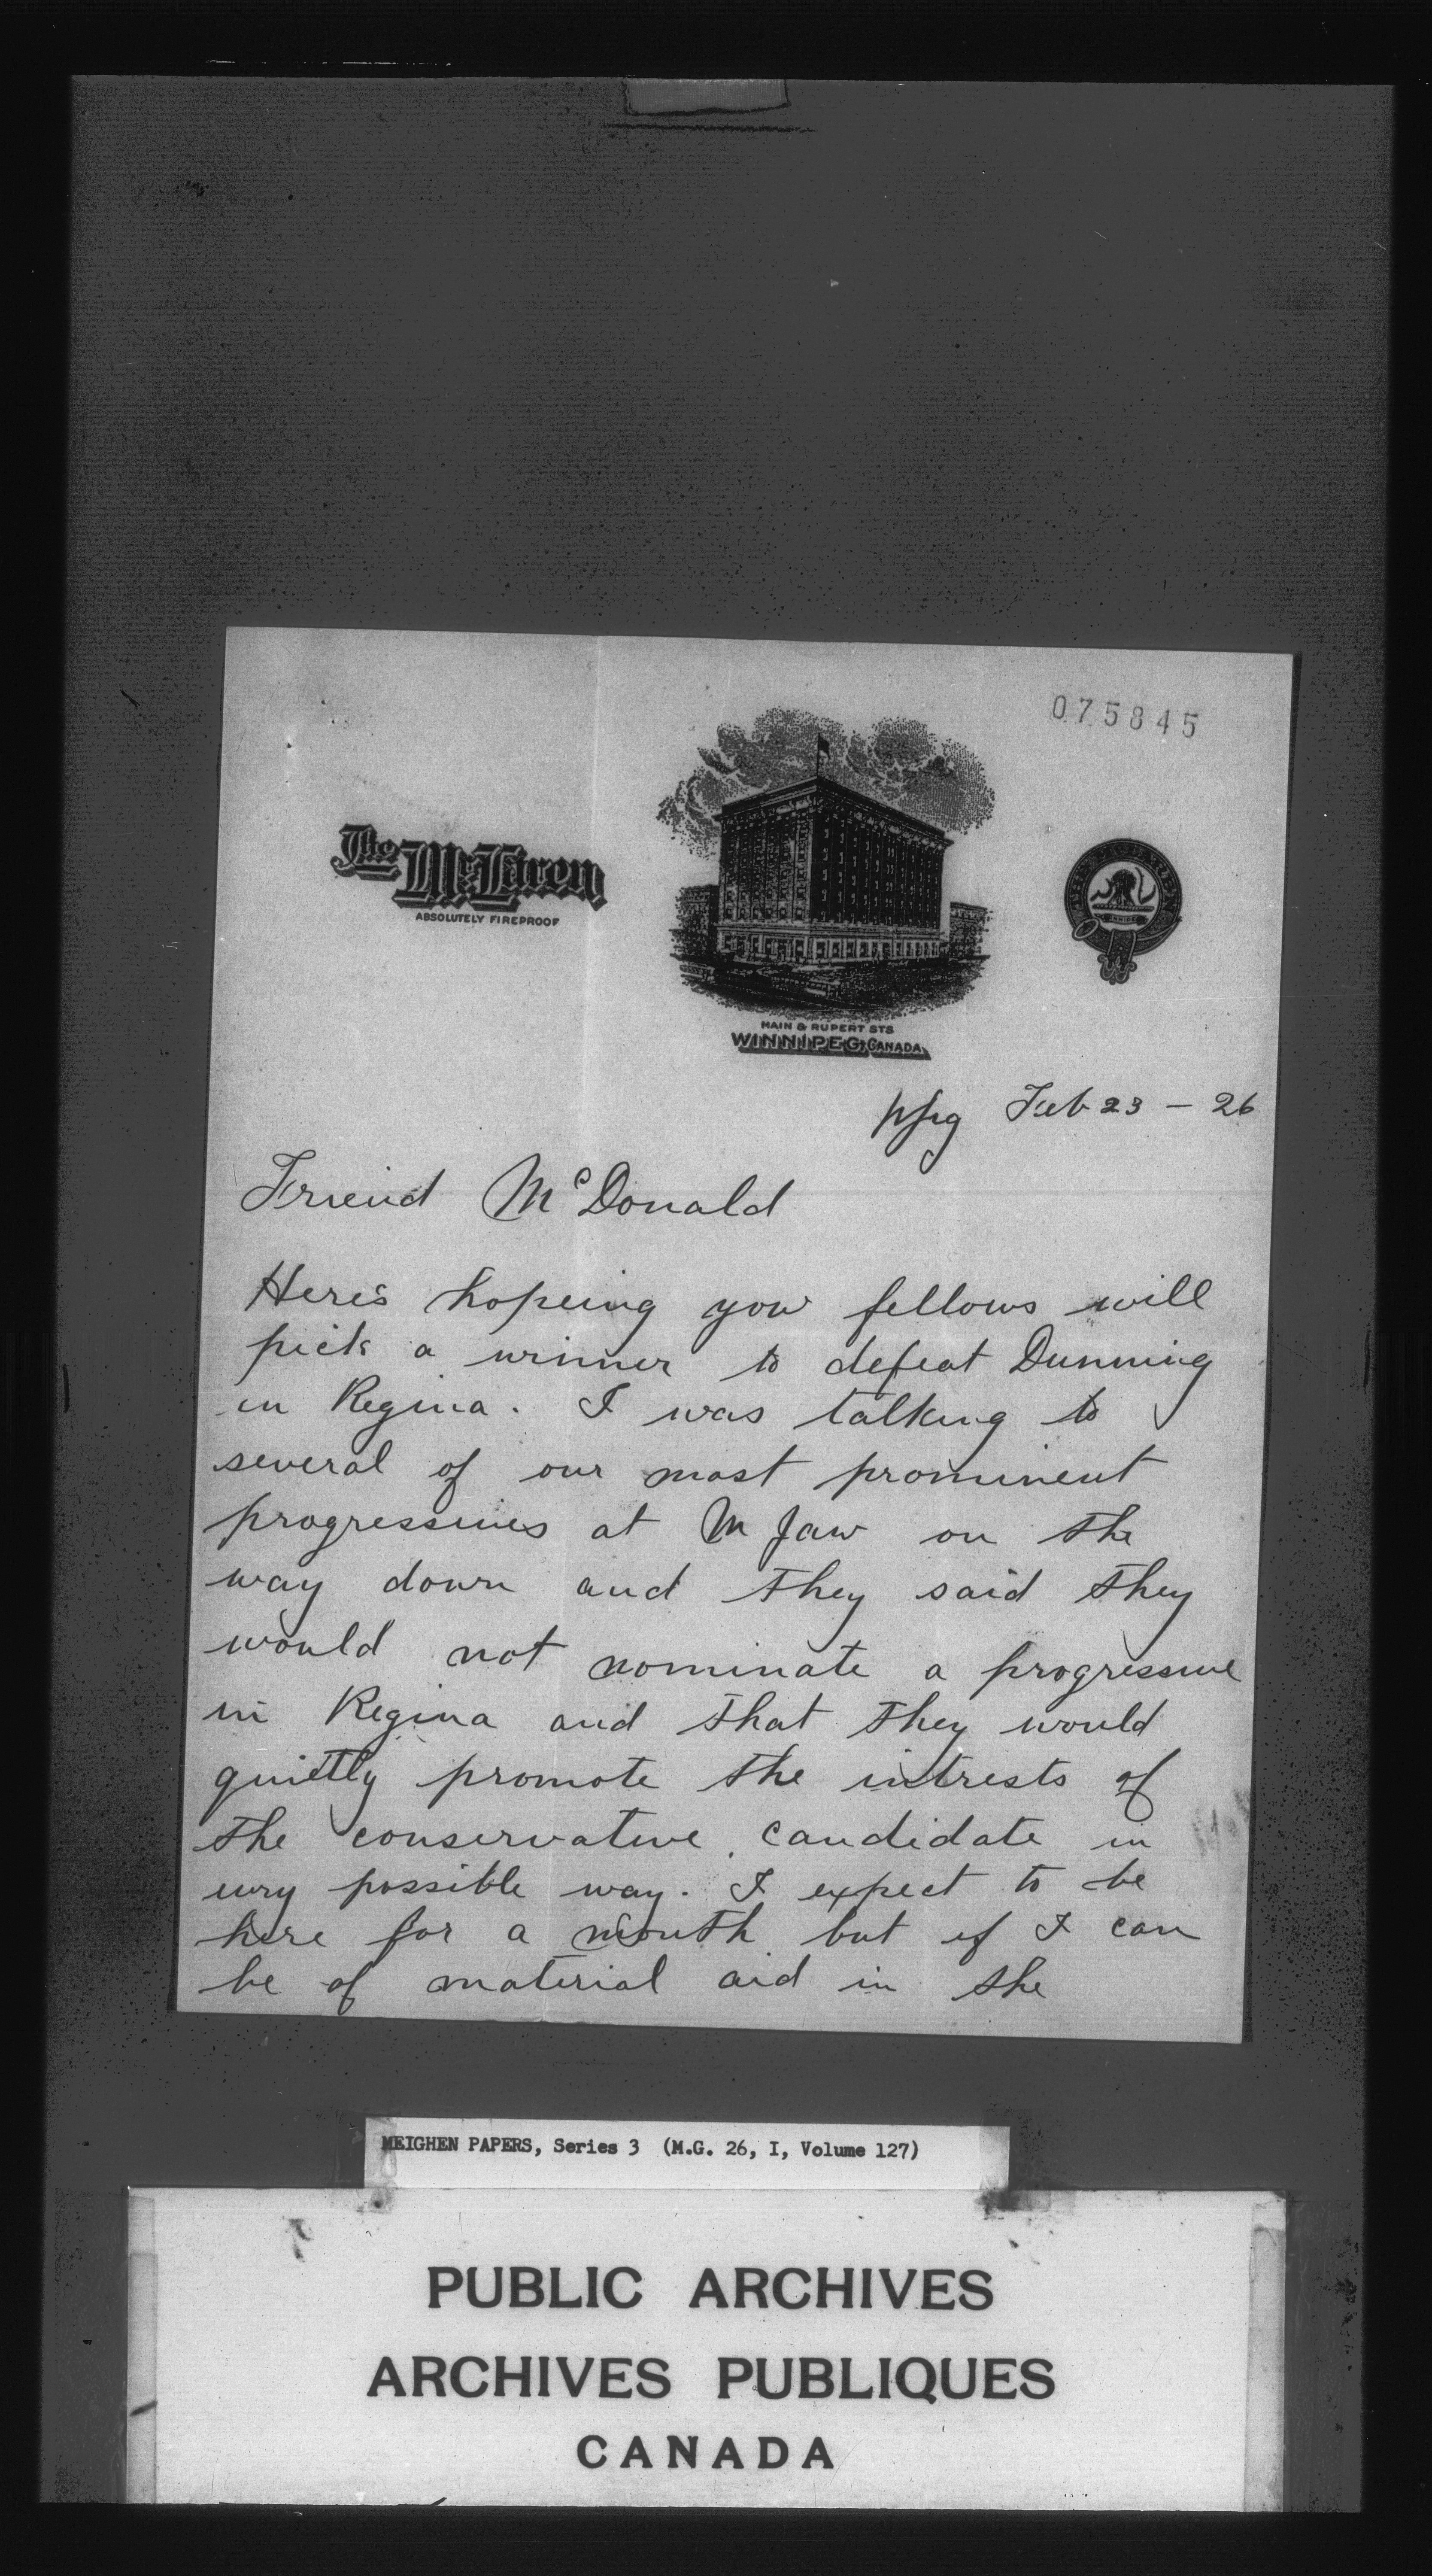 075845
The McLaren
ABSOLUTELY FIREPROOF
THE McLAREN
MAIN & RUPERT STS
WINNIPEG, CANADA
Wpg Feb 23 - 26
Friend McDonald
Here's hopeing you fellows will
pick a winner to defeat Dunning
in Regina. I was talking to
several of our most prominent
progressives at M Jaw on the
way down and they said they
would not nominate a progressive
in Regina and that they would
quietly promote the intrests of
the conservative candidate in
evry possible way. I expect to be
here for a month but if I can
be of material aid in the
MEIGHEN PAPERS, Series 3 (M.G. 26, I, Volume 127)
PUBLIC ARCHIVES
ARCHIVES PUBLIQUES
CANADA